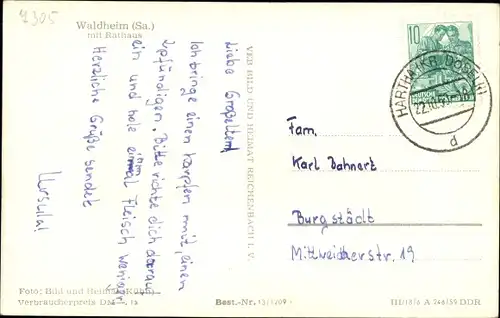 4305
Waldheim (Sa.)
mit Rathaus
Liebe Großeltern!
Ich bringe einen Karpfen mit, einen
2pfündigen. Bitte richte dich darauf
ein und hole einmal Fleisch weniger.
Herzliche Grüße sendet
Ursula!
VEB BILD UND HEIMAT REICHENBACH I. V.
10
HARTHA (KR. DÖBELN)
d
Fam.
Karl Dahnert
Burgstädt
Mittweidaerstr. 19
Foto: Bild und Heimat (Kühn)
Verbraucherpreis DM
Best.-Nr. 13/1209
III/18/6 A 246/59 DDR